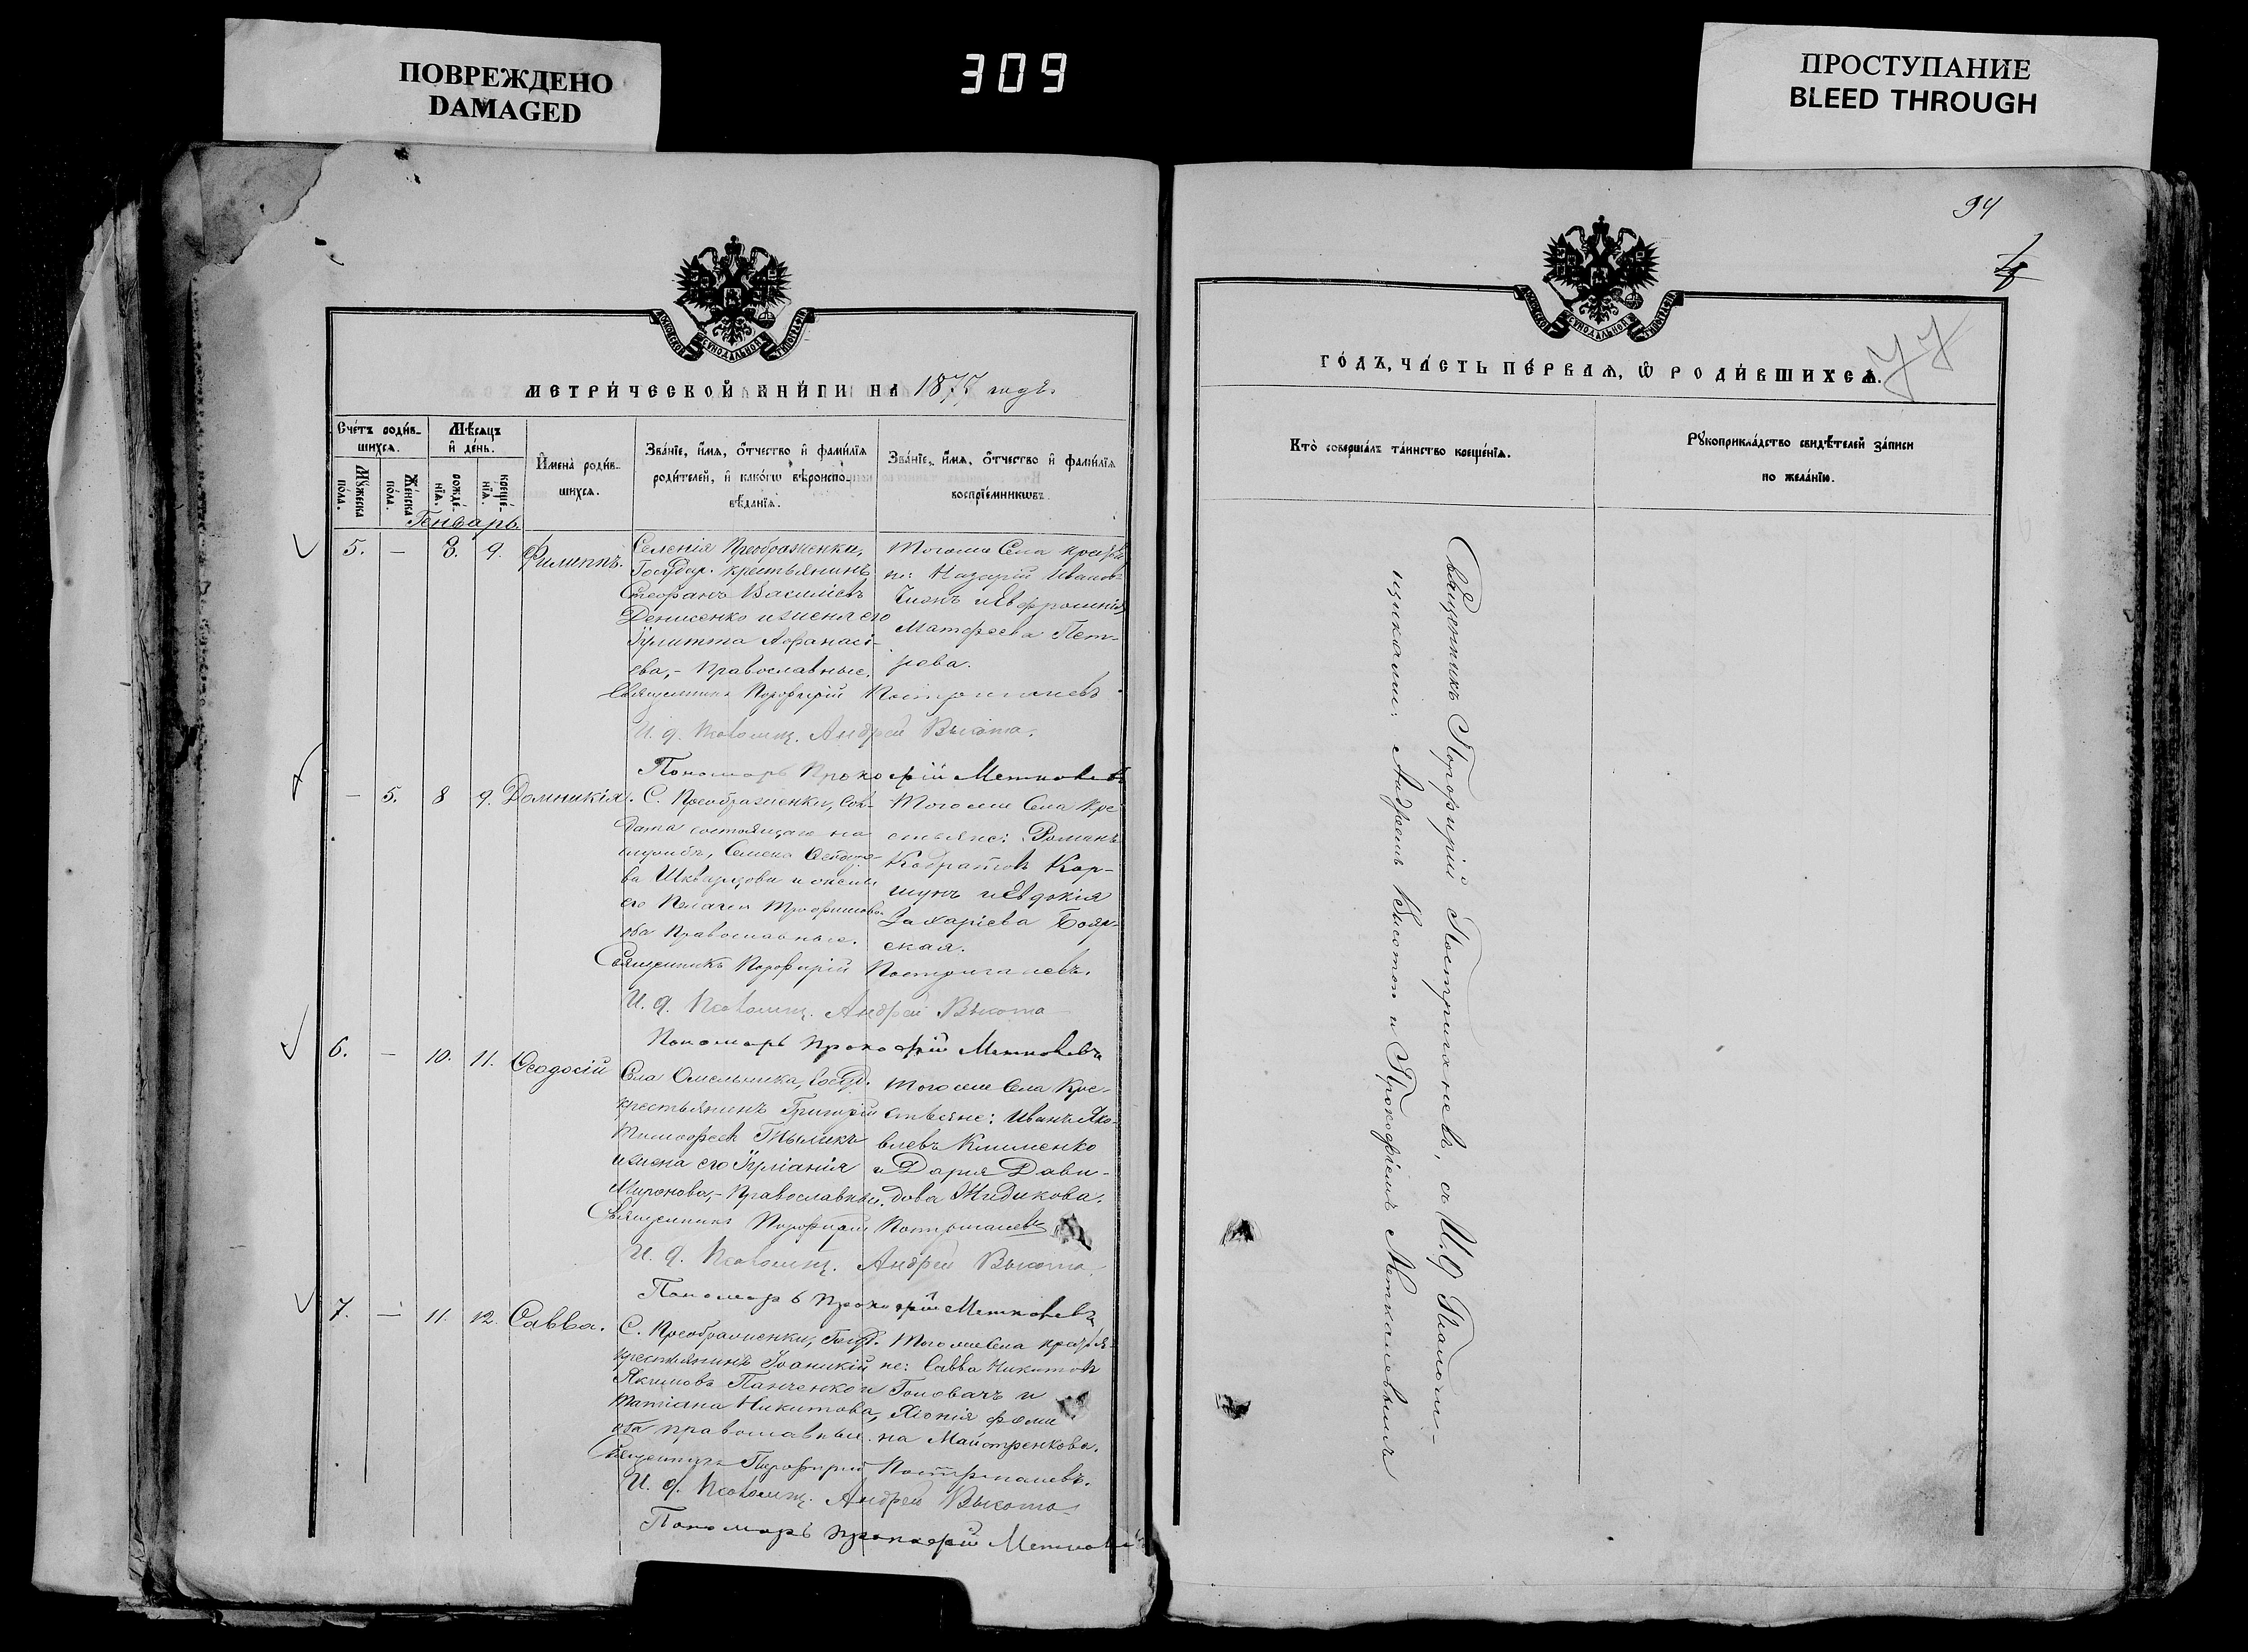 ПОВРЕЖДЕНО
DAMAGED
309
ПРОСТУПАНИЕ
BLEED THROUGH
94
77
МОСКОВСКОЙ СѴНОДАЛЬНОЙ ТИПОГРАФІИ
МЕТРИ́ЧЕСКОЙ КНИ́ГИ НА 1877 годъ.
Сче́тъ роди́в-
шихся.
Мѣ́сяцъ
и де́нь.
Му́жеска
по́ла.
Же́нска
по́ла.
рожде́-
нїя.
креще́-
нїя.
И҆мена̀ роди́в-
шихся.
Зва́нїе, и҆́мя, о҆́тчество и҆ фами́лїя
роди́телей, и҆ како́гѡ вѣроиспо-
вѣ́данїя.
Зва́нїе, и҆́мя, о҆́тчество и҆ фами́лїя
воспрїе́мникѡвъ.
Генварь.
5. — 8. 9. Филиппъ.
Селенія Преображенки,
Государ. крестьянинъ
Стефанъ Василіевъ
Денисенко и жена его
Іулитта Афанасі-
ева,- Православные.
Тогоже Села крестья
не: Назарій Иванов
и Евфросинія
Матфеева Пет-
рова.
Священникъ Порфирій Постригачевъ
И. д. Псаломщ. Андрей Высота.
Пономарь Прокофій Меткалевъ
— 5. 8 9. Домникія.
С. Преображенки, Сол-
дата состоящаго на
службѣ, Семена
и жены
его Пелагеи Трофимова
оба Православные.
Тогоже Села Кре-
стьяне: Романъ
Кодратовъ Кор-
шунъ и Евдокія
Захаріева Бояр-
ская.
Священникъ Порфирій Постригачевъ.
И. д. Псаломщ. Андрей Высота
Пономарь Прокофій Меткалевъ
6. — 10. 11. Ѳеодосій
Села Омельника, Госуд.
крестьянинъ Григорій
Тимофеевъ Гнылика
и жена его Іуліанія
Миронова,- Православные.
Тогоже Села Кре-
стьяне: Иванъ Яко-
влевъ Клименко
и Дарія Дави-
дова Жидикова.
Священникъ Порфирій Постригачевъ
И. д. Псаломщ. Андрей Высота
Пономарь Прокофій Меткалевъ
7. — 11. 12. Савва.
С. Преображенки, Госуд.
крестьянинъ Іоаникій
Якимовъ Панченко и
Татіана Никитова,
оба православные.
Тогоже Села крестья-
не: Савва Никитов
Головачъ и
Хіонія Фоми
на Майстренкова.
Священникъ Порфирій Постригачевъ.
И. д. Псаломщ. Андрей Высота
Пономарь Прокофій Меткалевъ
МОСКОВСКОЙ СѴНОДАЛЬНОЙ ТИПОГРАФІИ
ГО́ДЪ, ЧА́СТЬ ПЕ́РВАЯ, Ѡ҆ РОДИ́ВШИХСЯ.
Кто̀ соверша́лъ та́инство креще́нїя.
Рꙋкоприкла́дство свидѣ́телей за́писи
по жела́нїю.
Священникъ Порфирій Постригачевъ, съ И. д. Псаломщ-
щиками: Андреемъ Высотою и Прокофіемъ Меткалевымъ